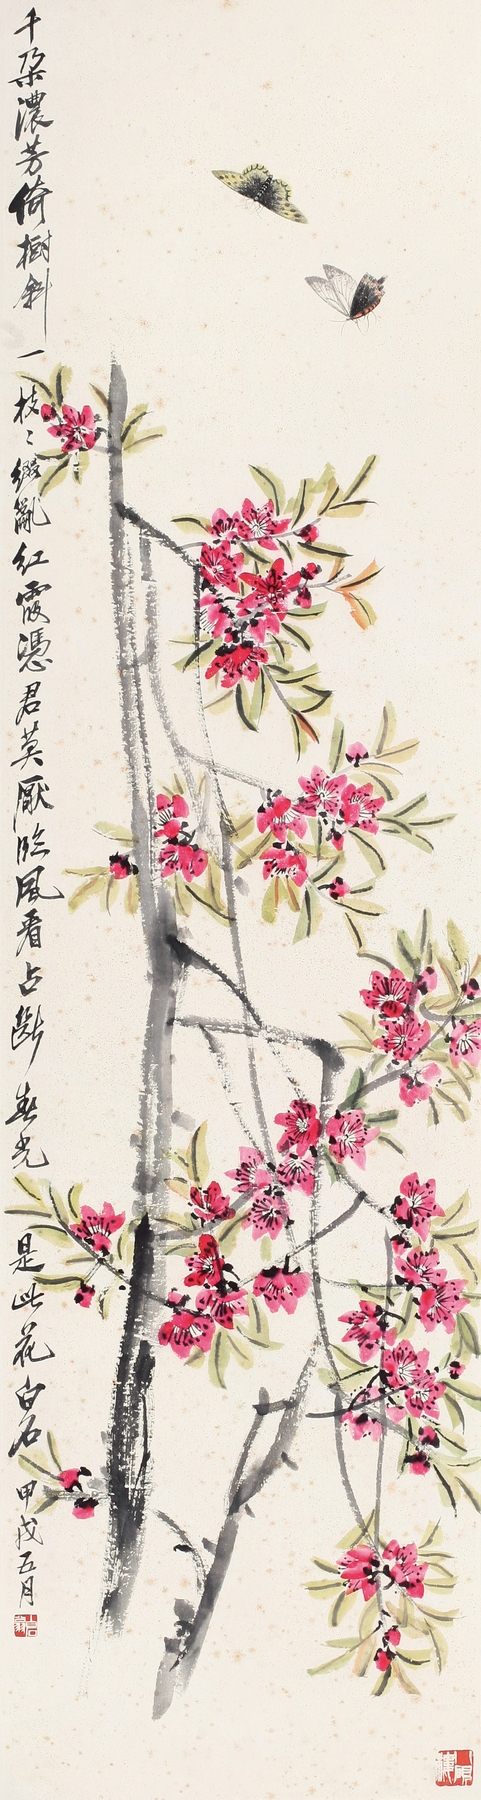 千朵濃芳倚樹斜一枝々綴亂紅霞憑君莫厭臨風看占斷春光是此花白石甲戌五月